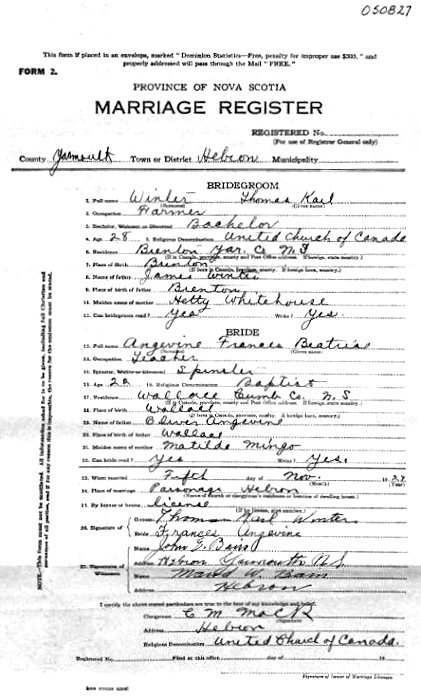 050827
This form if placed in an envelope, marked "Dominion Statistics—Free, penalty for improper use $300," and
properly addressed will pass through the Mail "FREE."
FORM 2.
PROVINCE OF NOVA SCOTIA
MARRIAGE REGISTER
REGISTERED No.
(For use of Registrar General only)
County Yarmouth Town or District Hebron Municipality
BRIDEGROOM
1. Full name Winter Thomas Karl
(Surname) (Given name)
2. Occupation Farmer
3. Bachelor, Widower or Divorced Bachelor
4. Age 28 5. Religious Denomination United Church of Canada
6. Residence Brenton Yar. Co N.S
7. Place of Birth Brenton
8. Name of father James Winter
9. Place of birth of father Brenton
10. Maiden name of mother Hetty Whitehouse
11. Can bridegroom read? Yes Write? Yes.
BRIDE
12. Full name Angevine Frances Beatrice
(Surname) (Given name)
13. Occupation Teacher
14. Spinster, Widow or Divorced Spinster
15. Age 22 16. Religious Denomination Baptist
17. Residence Wallace Cumb Co. N.S
18. Place of birth Wallace
19. Name of father Oliver Angevine
20. Place of birth of father Wallace
21. Maiden name of mother Matilda Mingo
22. Can bride read? Yes Write? Yes.
23. When married Fifth day of Nov. 19 37
(Month) (Year)
24. Place of marriage Parsonage Hebron
25. By license or banns license
26. Signature of Groom Thomas Karl Winter
Bride Frances Angevine
27. Signature of Witnesses Name John G. Bain
Address Hebron Yarmouth N.S.
Name Maud W. Bain
Address Hebron
I certify the above stated particulars are true to the best of my knowledge and belief.
Clergyman C M Mack
Address Hebron
Religious Denomination United Church of Canada.
Registered No. Filed at this office day of 19
Signature of Issuer of Marriage Licenses
NOTE.—This form must not be mutilated. All information asked for is to be given, including full Christian and
surnames of all parties, and if for any reason this is impossible, the reason for the omission must be stated.